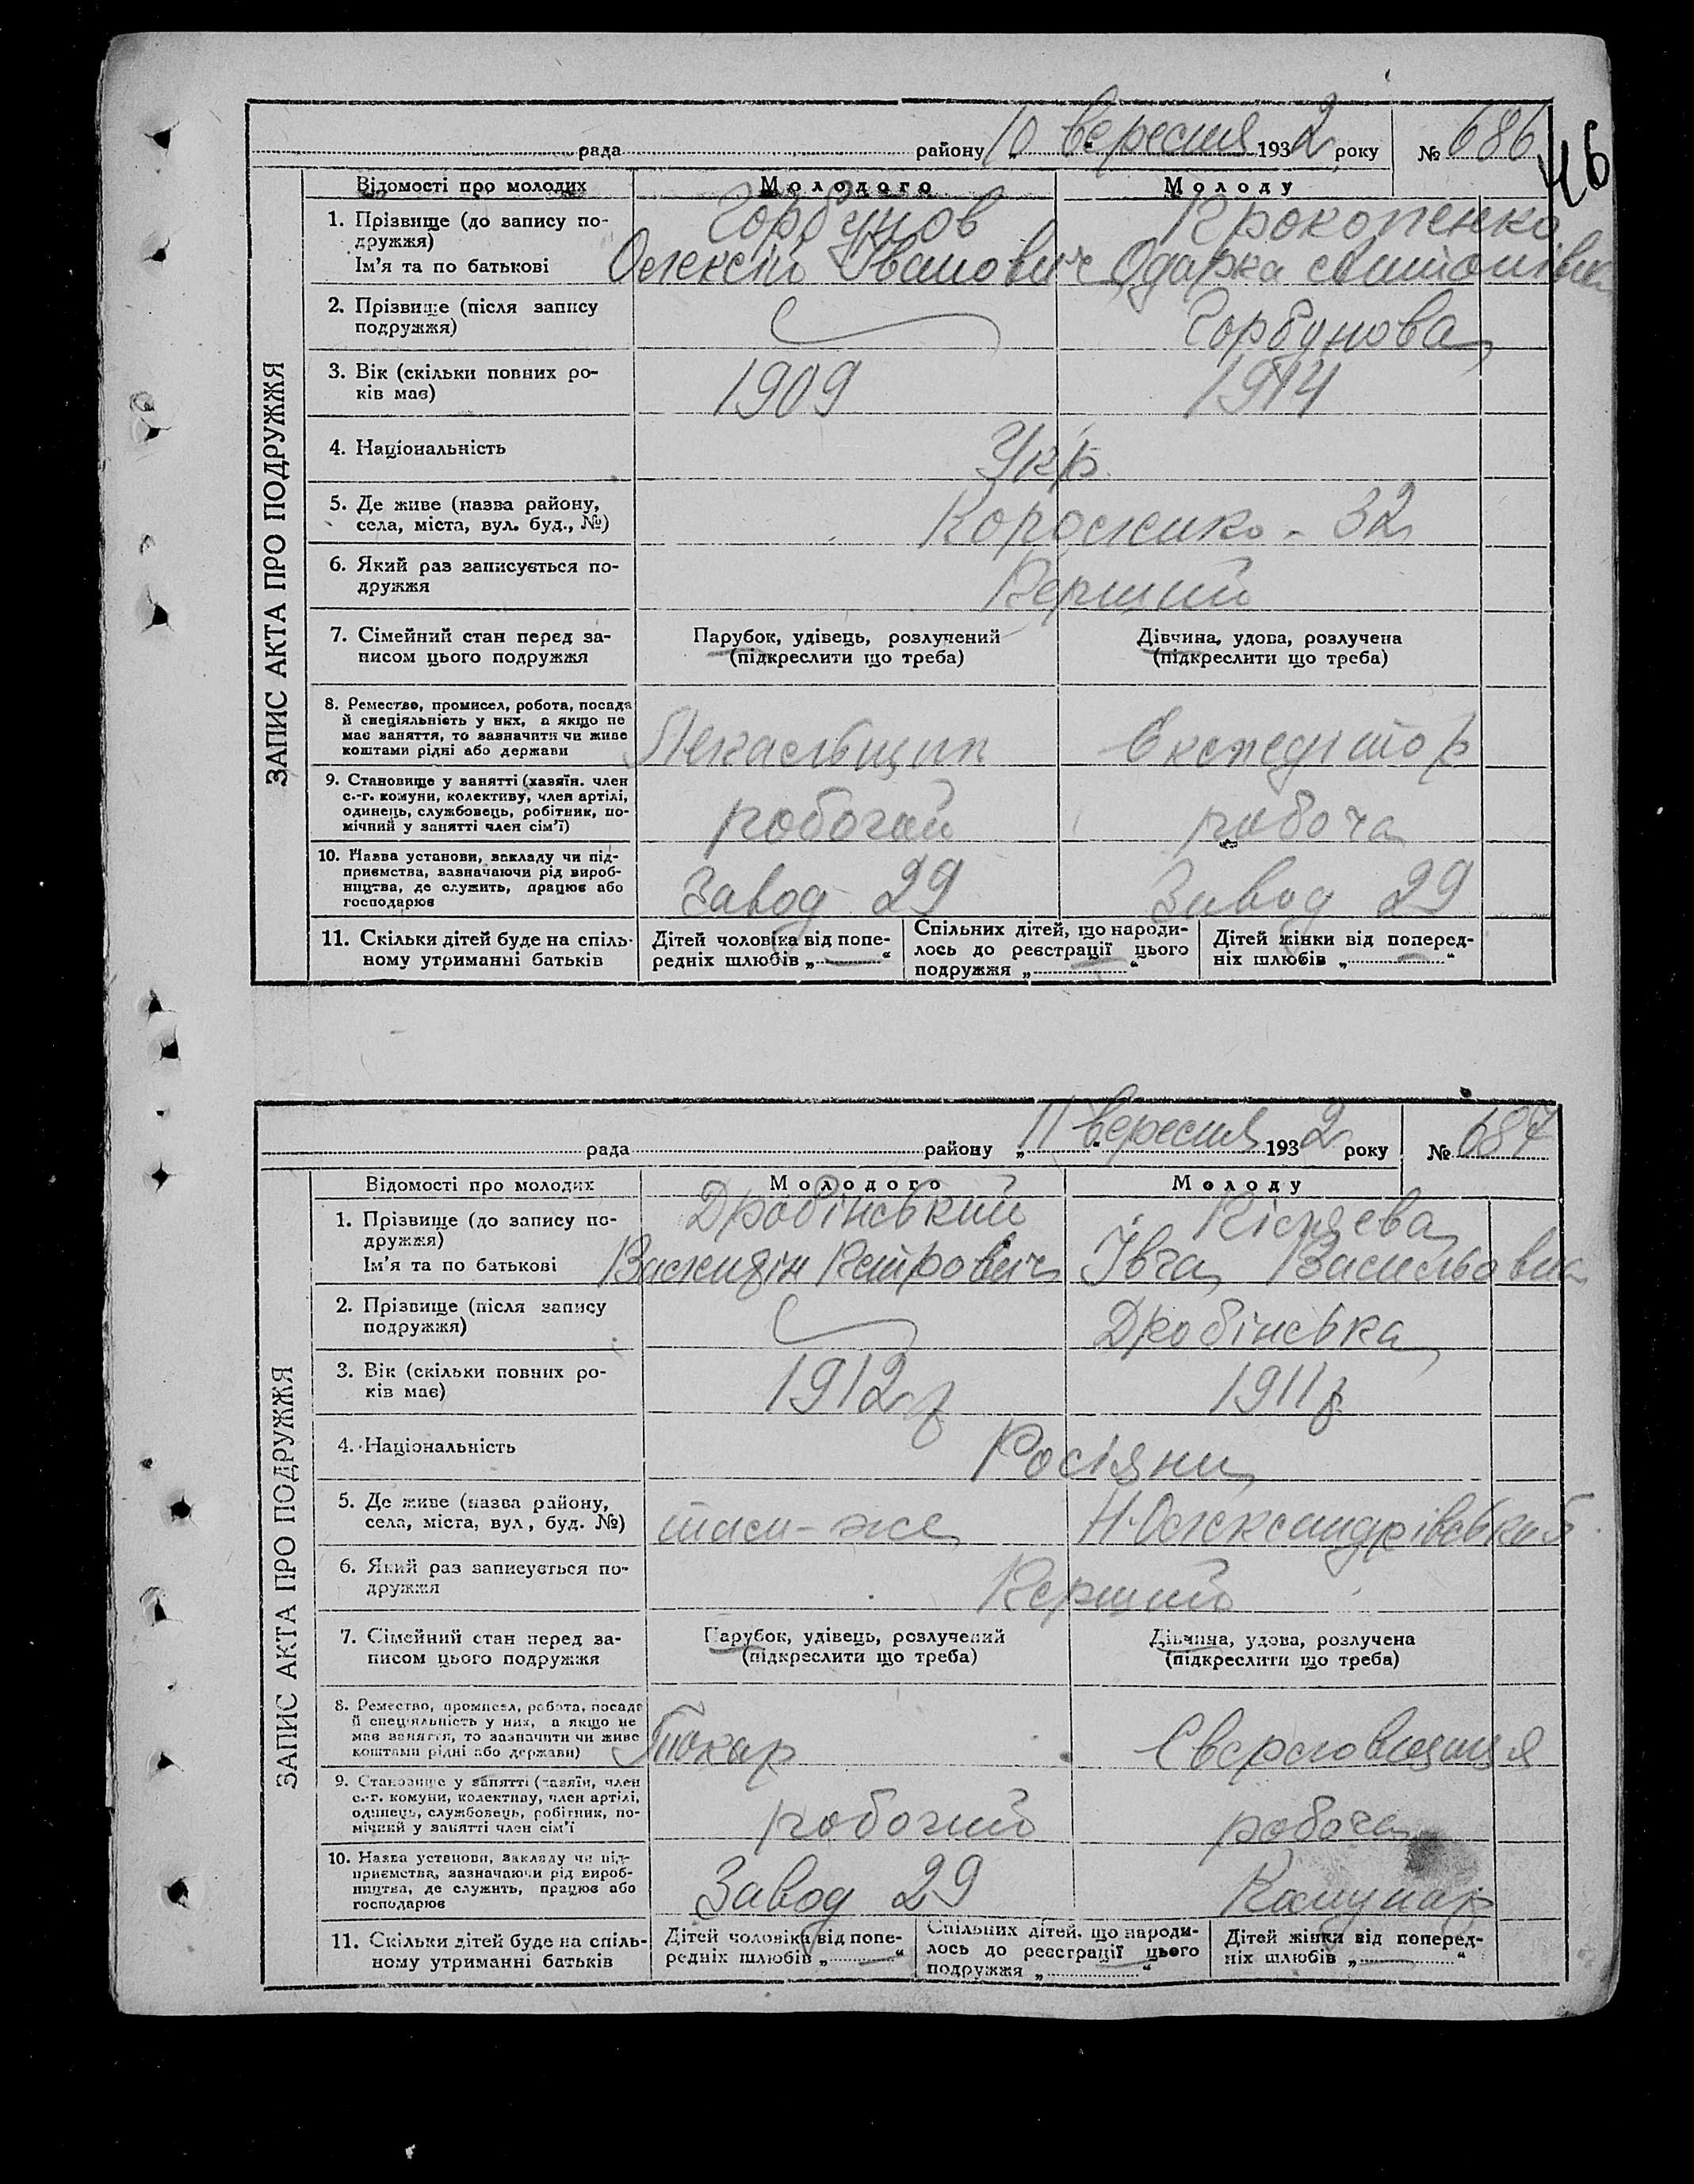 рада района 10 „ вересня " 1932 року № 686
46
ЗАПИС АКТА ПРО ПОДРУЖЖЯ
Відомості про молодих Молодого Молоду
1. Прізвище (до запису по-
дружжя) Горбунов Прокопенко
Ім'я та по батькові Олексій Іванович Одарка Антонівна
2. Прізвище (після запису
подружжя) Горбунова
3. Вік (скільки повних ро-
ків має) 1909 1914
4. Національність Укр.
5. Де живе (назва району,
села, міста, вул. буд., №) Короленко - 32
6. Який раз записується по-
дружжя Перший
7. Сімейний стан перед за-
писом цього подружжя
Парубок, удівець, розлучений
(підкреслити що треба)
Дівчина, удова, розлучена
(підкреслити що треба)
8. Ремество, промисел, робота, посада
й спеціяльність у них, а якщо не
має заняття, то зазначити чи живе
коштами рідні або держави
Експедітор
9. Становище у занятті (хазяїн. член
с.-г. комуни, колективу, член артілі,
одинець, службовець, робітник, по-
мічний у занятті член сім'ї)
робочий робоча
10. Назва установи, закладу чи під-
приємства, зазначаючи рід вироб-
ництва, де служить, працює або
господарює
Завод 29 Завод 29
11. Скільки дітей буде на спіль-
ному утриманні батьків
Дітей чоловіка від попе-
редніх шлюбів „ — "
Спільних дітей, що народи-
лось до реєстрації цього
подружжя „ — "
Дітей жінки від поперед-
ніх шлюбів „ — "
рада району „ 11 " вересня 1932 року № 687
ЗАПИС АКТА ПРО ПОДРУЖЖЯ
Відомості про молодих Молодого Молоду
1. Прізвище (до запису по-
дружжя) Дробінський
Ім'я та по батькові Петрович Івга Васильовна
2. Прізвище (після запису
подружжя) Дробінська
3. Вік (скільки повних ро-
ків має) 1912 р 1911 р
4. Національність Росіяни
5. Де живе (назва району,
села, міста, вул, буд. №) там-же Н-Олександрівськ
6. Який раз записується по-
дружжя Перший
7. Сімейний стан перед за-
писом цього подружжя
Парубок, удівець, розлучений
(підкреслити що треба)
Дівчина, удова, розлучена
(підкреслити що треба)
8. Ремество, промисел, робота, посада
й спеціяльність у них, а якщо не
має заняття, то зазначити чи живе
коштами рідні або держави)
Токар Сверловщиця
9. Становище у занятті (хазяїн, член
с.-г. комуни, колективу, член артілі,
одинець, службовець, робітник, по-
мічний у занятті член сім'ї
робочий робоча
10. Назва установи, закладу чи під-
приємства, зазначаючи рід вироб-
ництва, де служить, працює або
господарює
Завод 29 Комунар
11. Скільки дітей буде на спіль-
ному утриманні батьків
Дітей чоловіка від попе-
редніх шлюбів „ — "
Спільних дітей, що народи-
лось до реєстрації цього
подружжя „ — "
Дітей жінки від поперед-
ніх шлюбів „ — "